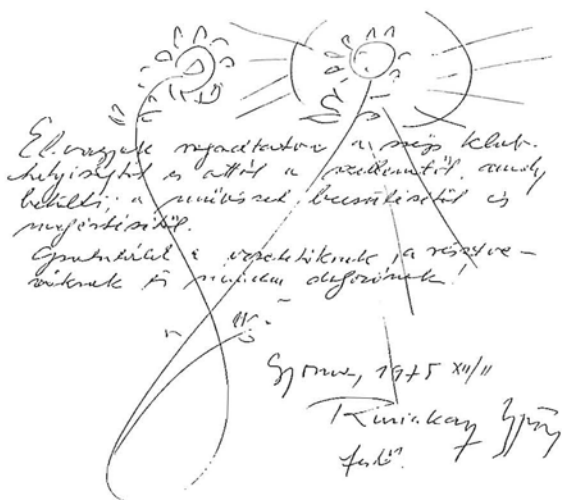 El vagyok ragadtatva a szép klub-
helyiségtől és attól a szellemtől, amely
betölti; a művészet becsülésétől és
megértésétől.
Gratulálok a vezetőknek, a résztve-
vőknek és minden dolgozónak!
1975 XII/11
György
festő.